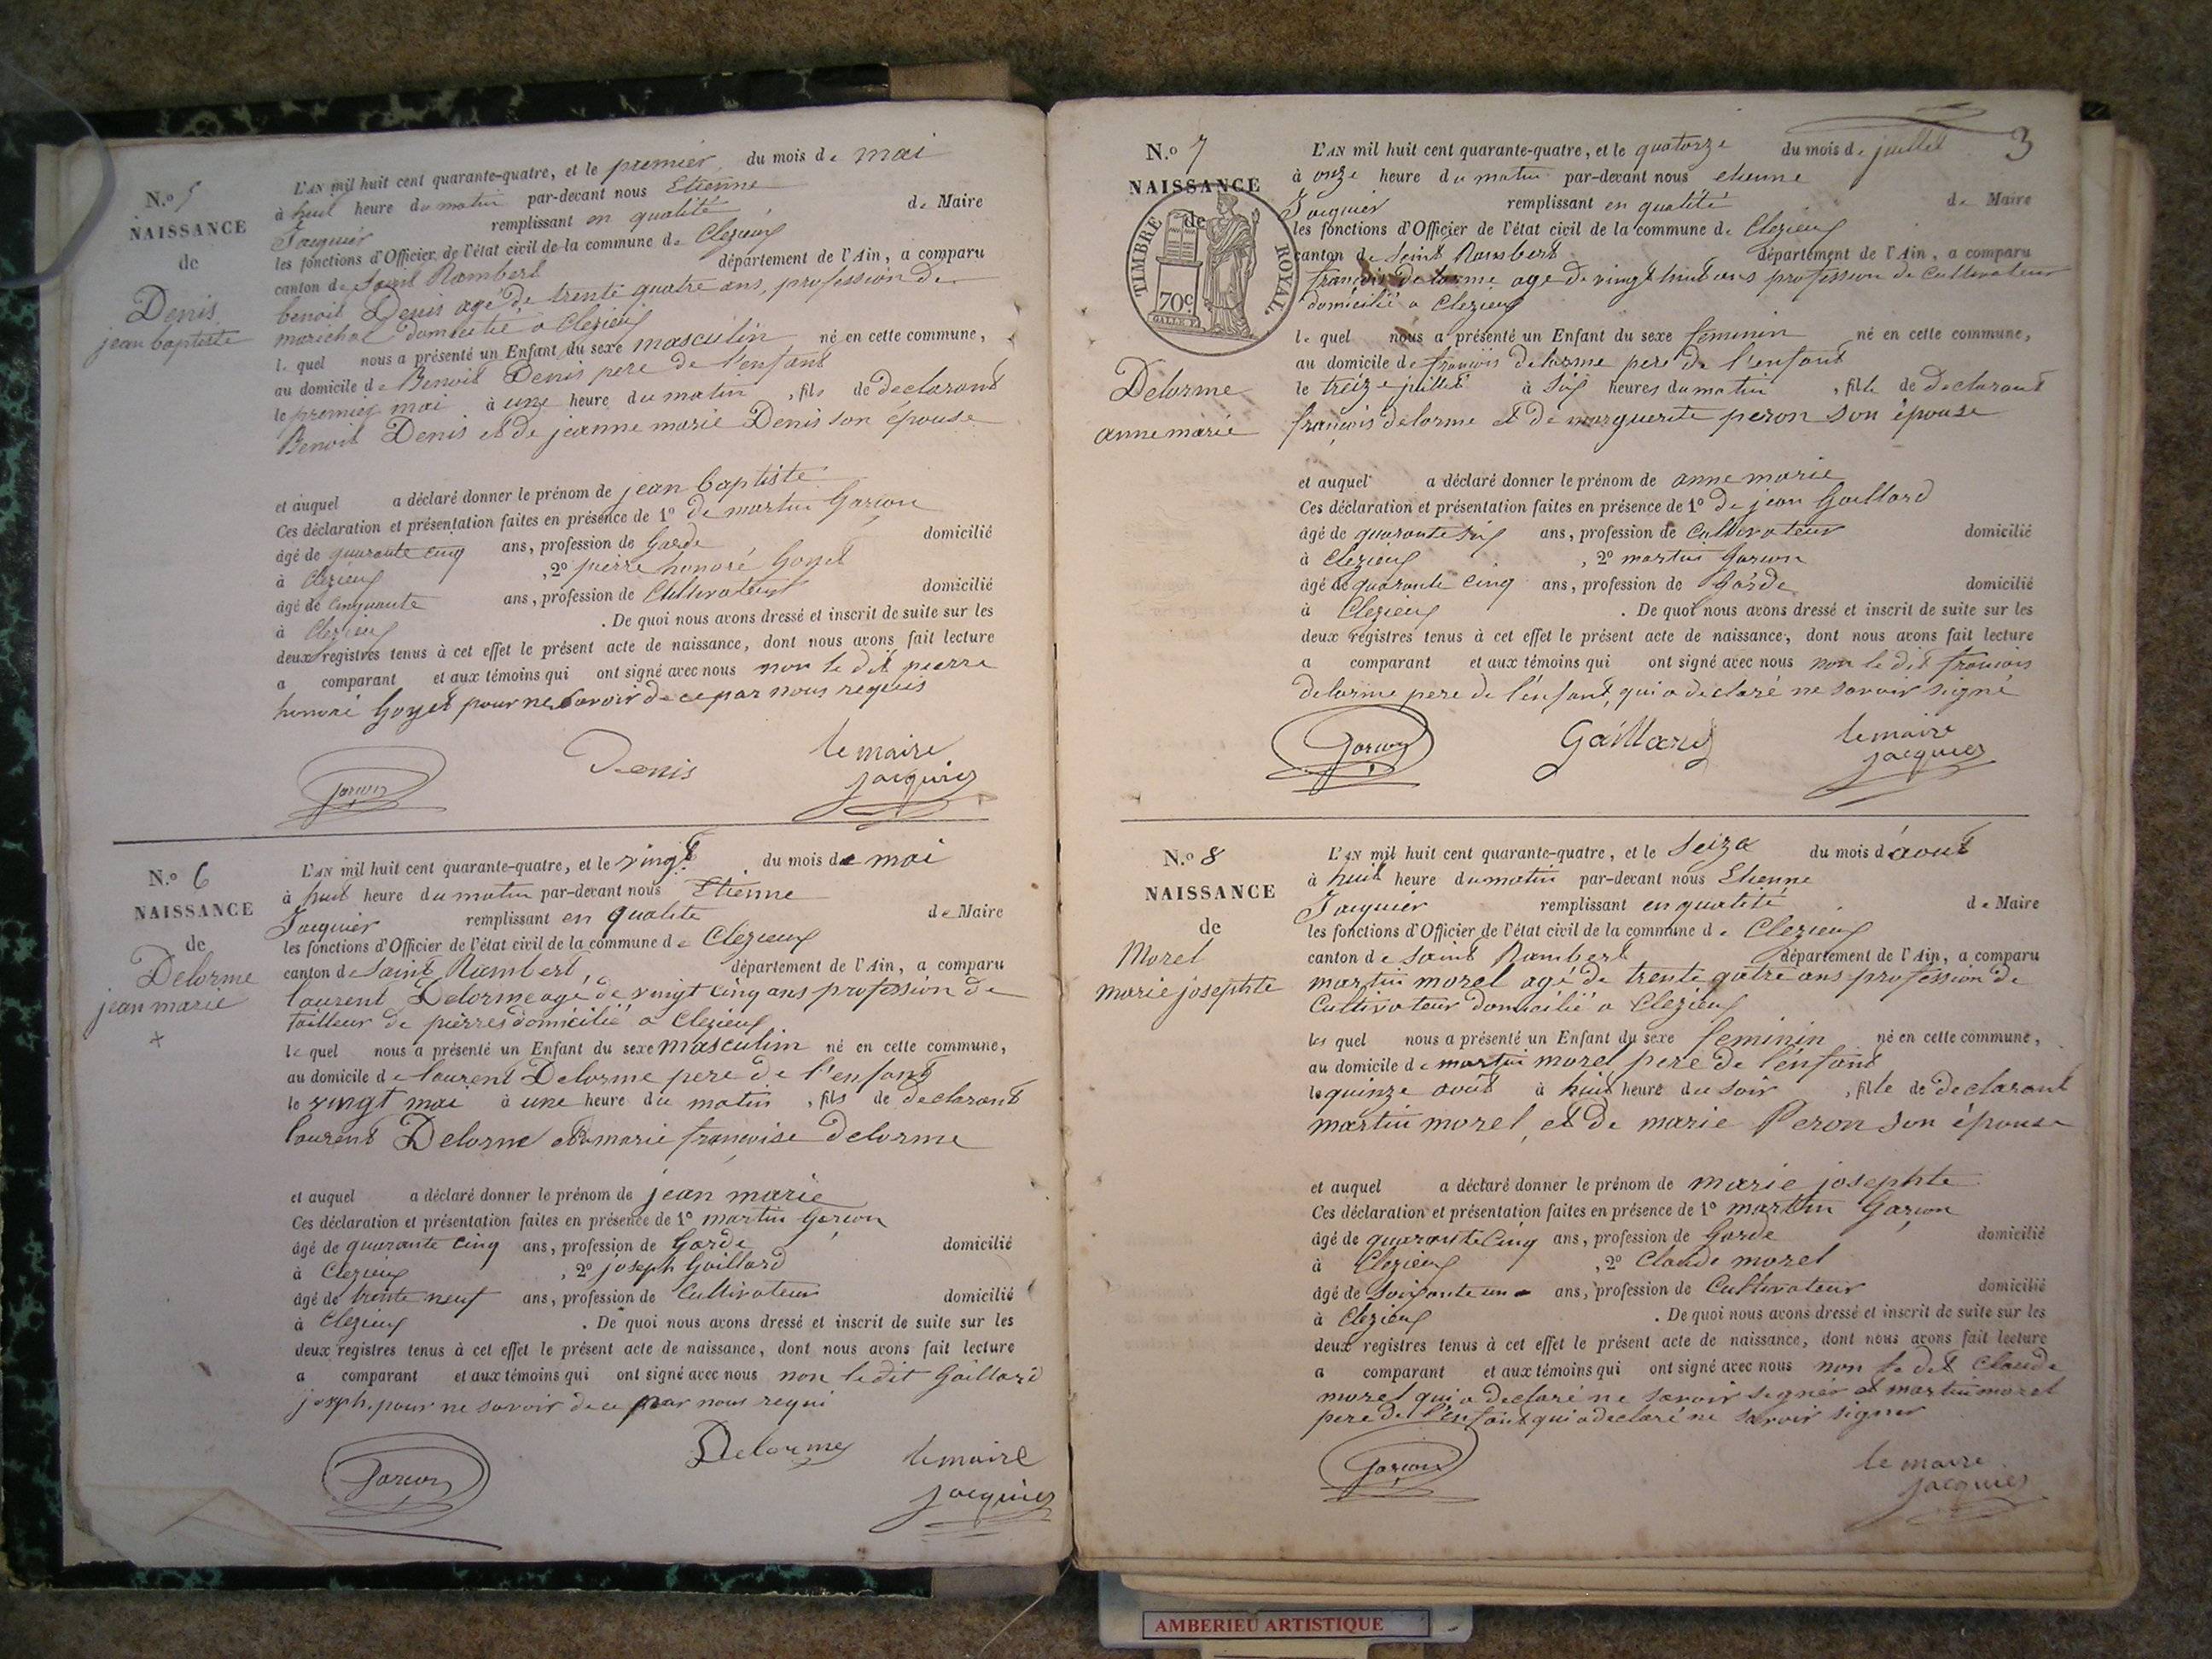 N.o 5
NAISSANCE
de
Denis
jean baptiste
L'AN mil huit cent quarante-quatre, et le premier du mois de mai
à huit heure du matin par-devant nous Etienne
Jacquier remplissant en qualité de Maire
les fonctions d'Officier de l'état civil de la commune de Clezieux
canton de Saint Rambert département de l'Ain, a comparu
benoit Denis agé de trente quatre ans, profession de
marichal domicilié a Clezieux
le quel nous a présenté un Enfant du sexe masculin né en cette commune,
au domicile de Benoit Denis pere de l'enfant
le premier mai à une heure du matin, fils de declarant
Benoit Denis et de jeanne marie Denis son épouse
et auquel a déclaré donner le prénom de jean baptiste
Ces déclaration et présentation faites en présence de 1o de martin Garçon
âgé de quarante cinq ans, profession de Garde domicilié
à Clezieux, 2o pierre honoré Goyet
âgé de cinquante ans, profession de Cultivateur domicilié
à Clezieux. De quoi nous avons dressé et inscrit de suite sur les
deux registres tenus à cet effet le présent acte de naissance, dont nous avons fait lecture
a comparant et aux témoins qui ont signé avec nous non le dit pierre
honoré Goyet pour ne savoir de ce par nous requis
Garçon
Denis
le maire
jacquier
N.o 6
NAISSANCE
de
Delorme
jean marie
L'AN mil huit cent quarante-quatre, et le vingt du mois de mai
à huit heure du matin par-devant nous Etienne
Jacquier remplissant en qualité de Maire
les fonctions d'Officier de l'état civil de la commune de Clezieux
canton de Saint Rambert, département de l'Ain, a comparu
laurent Delorme agé de vingt cinq ans profession de
tailleur de pierres domicilié a Clezieux
le quel nous a présenté un Enfant du sexe masculin né en cette commune,
au domicile de laurent Delorme pere de l'enfant
le vingt mai à une heure du matin, fils de declarant
laurent Delorme et de marie françoise delorme
et auquel a déclaré donner le prénom de jean marie
Ces déclaration et présentation faites en présence de 1o martin Garçon
âgé de quarante cinq ans, profession de Garde domicilié
à Clezieux, 2o joseph Gaillard
âgé de trente neuf ans, profession de Cultivateur domicilié
à Clezieux. De quoi nous avons dressé et inscrit de suite sur les
deux registres tenus à cet effet le présent acte de naissance, dont nous avons fait lecture
a comparant et aux témoins qui ont signé avec nous non le dit Gaillard
joseph. pour ne savoir de ce par nous requi
Garçon
Delorme
le maire
jacquier
3
N.o 7
NAISSANCE
de
TIMBRE ROYAL
70c.
Delorme
anne marie
L'AN mil huit cent quarante-quatre, et le quatorze du mois de juillet
à onze heure du matin par-devant nous etienne
Jacquier remplissant en qualité de Maire
les fonctions d'Officier de l'état civil de la commune de Clezieux
canton de Saint Rambert département de l'Ain, a comparu
françois delorme agé de vingt huit ans profession de Cultivateur
domicilié a Clezieux
le quel nous a présenté un Enfant du sexe feminin né en cette commune,
au domicile de françois delorme pere de l'enfant
le treize juillet à six heures du matin, fille de declarant
françois delorme et de marguerite peron son épouse
et auquel a déclaré donner le prénom de anne marie
Ces déclaration et présentation faites en présence de 1o de jean Gaillard
âgé de quarante six ans, profession de Cultivateur domicilié
à Clezieux, 2o martin Garçon
âgé de quarante cinq ans, profession de Garde domicilié
à Clezieux. De quoi nous avons dressé et inscrit de suite sur les
deux registres tenus à cet effet le présent acte de naissance, dont nous avons fait lecture
a comparant et aux témoins qui ont signé avec nous non le dit françois
delorme pere de l'enfant, qui a declaré ne savoir signé
Garçon
Gaillard
le maire
jacquier
N.o 8
NAISSANCE
de
Morel
marie josephte
L'AN mil huit cent quarante-quatre, et le Seize du mois d'août
à huit heure du matin par-devant nous Etienne
Jacquier remplissant en qualité de Maire
les fonctions d'Officier de l'état civil de la commune de Clezieux
canton de Saint Rambert département de l'Ain, a comparu
martin morel agé de trente quatre ans profession de
Cultivateur domicilié a Clezieux
le quel nous a présenté un Enfant du sexe feminin né en cette commune,
au domicile de martin morel pere de l'enfant
le quinze août à huit heure du soir, fille de declarant
martin morel, et de marie Peron son épouse
et auquel a déclaré donner le prénom de marie josephte
Ces déclaration et présentation faites en présence de 1o martin Garçon
âgé de quarante cinq ans, profession de Garde domicilié
à Clezieux, 2o Claude morel
âgé de Soixante un ans, profession de Cultivateur domicilié
à Clezieux. De quoi nous avons dressé et inscrit de suite sur les
deux registres tenus à cet effet le présent acte de naissance, dont nous avons fait lecture
a comparant et aux témoins qui ont signé avec nous non le dit Claude
morel qui a declaré ne savoir signer et martin morel
pere de l'enfant qui a declaré ne savoir signer
Garçon
le maire
jacquier
AMBERIEU ARTISTIQUE